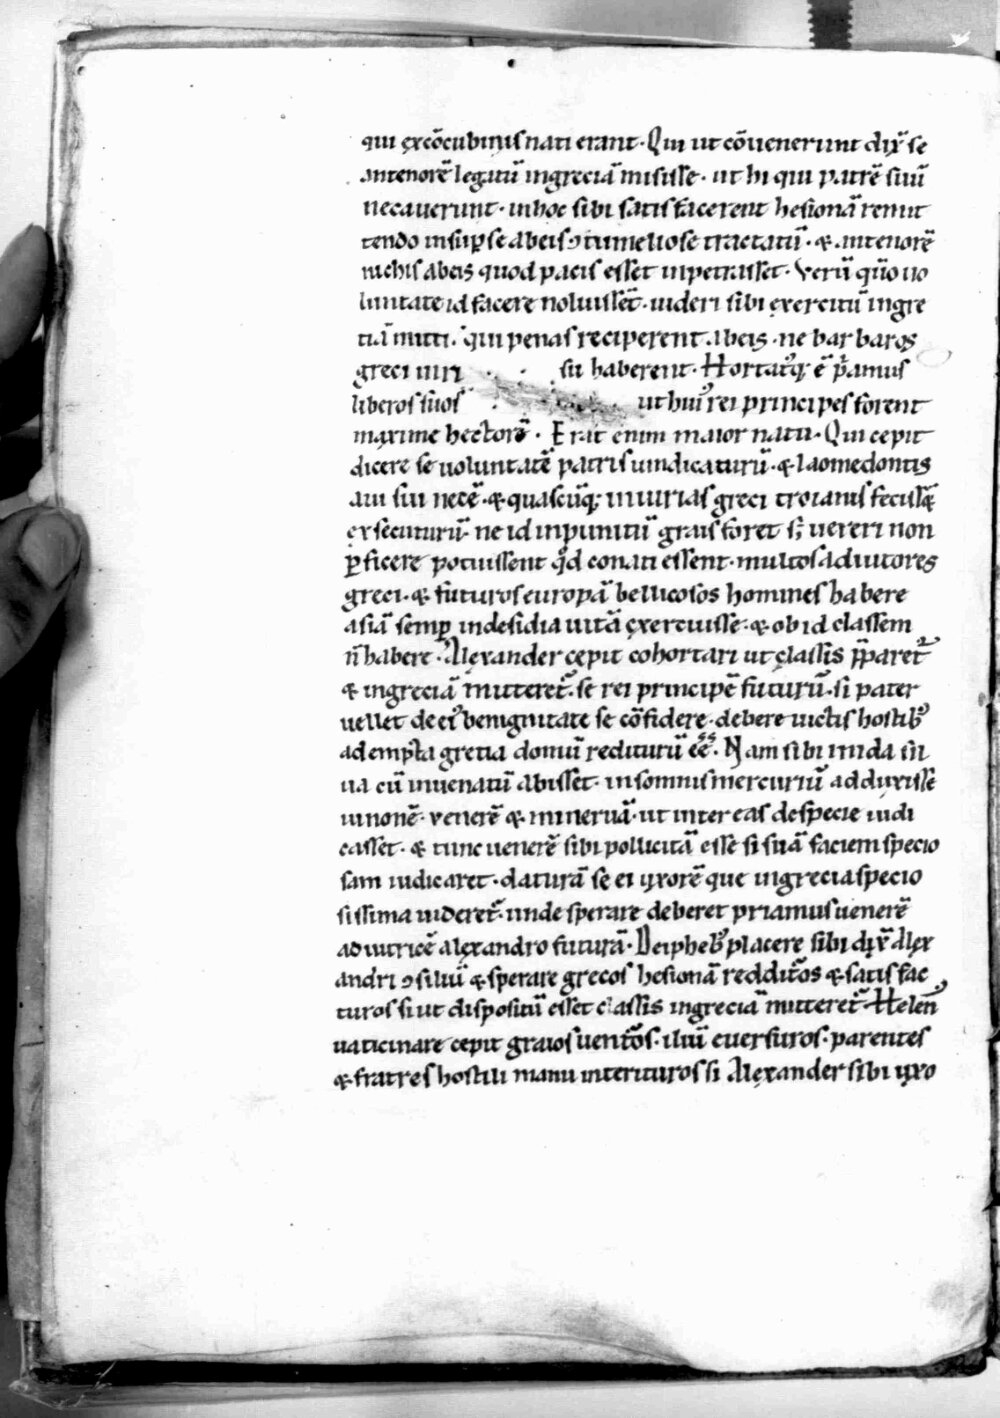 qui ex cōcubinis nati erant. Qui ut cōuenerunt dix̄ se
antenorē legatū in greciā misisse. ut hi qui patrē suū
necauerunt. in hoc sibi satis facerent hesionā remit
tendo insup̱ se ab eis ꝯtumeliose tractatū. & antenorē
nichil ab eis quod pacis esset inpetrasset. Verū qm̄ uo
luntate id facere noluissēt. uideri sibi exercitū in gre
tiā mitti. qui penas reciperent ab eis. ne barbaros
greci irri su haberent. Hortatꝰq; ē p̄amus
liberos suos ut huiꝰ rei principes forent
maxime hectorē. Erat enim maior natu. Qui cepit
dicere se uoluntatē patris uindicaturū. & laomedontis
aui sui necē. & quascūq; iniurias greci troianis fecissēt
exsecuturū. ne id inpunitū grais foret. sꝫ uereri non
ꝑficere potuissent qd̄ conati essent. multos adiutores
greci. & futuros europā bellicosos homines habere
asiā semꝑ in desidia uitā exercuisse. & ob id classem
n̄ habere. Alexander cepit cohortari ut classis p̄pararet᷑
& in greciā mitteret᷑. se rei principē futurū. si pater
uellet de eiꝰ benignitate se cōfidere. debere uictis hostibꝰ
adempta gretia domū rediturū eēē. Nam sibi in ida sil
ua cū inuenatū abisset. in somnis mercuriū adduxisse
iunonē. venerē & mineruā. ut inter eas de specie iudi
casset. & tunc uenerē sibi pollicitā esse si suā faciem specio
sam iudicaret. daturā se ei uxorē que in grecia specio
sissima uideret᷑. unde sperare deberet priamus uenerē
adiutricē alexandro futurā. Deiphebꝰ placere sibi dix̄ Alex
andri ꝯsiliū & sperare grecos hesionā reddit᷑os & satis fac
turos si ut dispositū esset classis in greciā mitteret᷑. Helenꝰ
uaticinare cepit graios uent᷑os. iliū euersuros. parentes
& fratres hostili manu interituros si Alexander sibi uxo